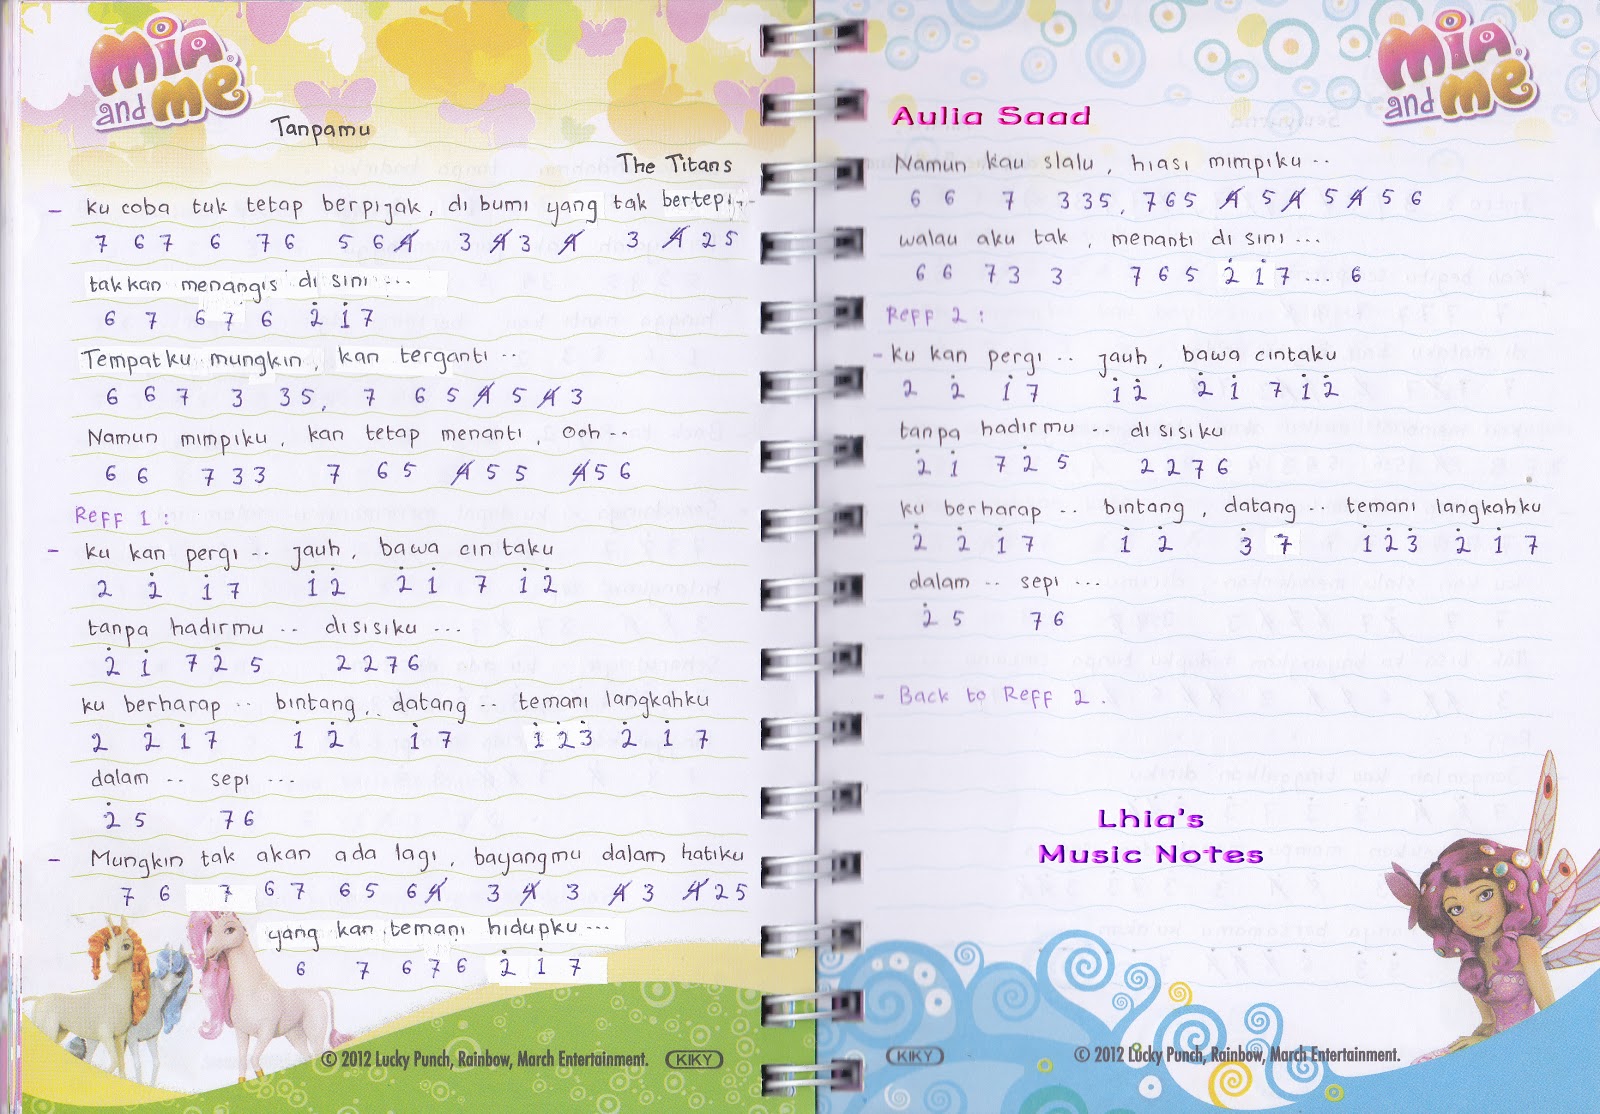 mia and me
Tanpamu
The Titans
- ku coba tuk tetap berpijak, di bumi yang tak bertepi..
7 6 7 6 7 6 5 6 4̸ 3 4̸ 3 4̸ 3 4̸ 2 5
takkan menangis di sini ...
6 7 6 7 6 2̇ 1̇ 7
Tempatku mungkin, kan terganti ..
6 6 7 3 3 5, 7 6 5 4̸ 5 4̸ 3
Namun mimpiku, kan tetap menanti, ooh ..
6 6 7 3 3 7 6 5 4̸ 5 5 4̸ 5 6
Reff 1 :
- ku kan pergi .. jauh, bawa cin taku
2 2̇ 1̇ 7 1̇ 2̇ 2̇ 1̇ 7 1̇ 2̇
tanpa hadirmu .. disisiku ...
2̇ 1̇ 7 2̇ 5 2 2 7 6
ku berharap .. bintang, datang .. temani langkahku
2 2̇ 1̇ 7 1̇ 2̇ 1̇ 7 1̇ 2̇ 3̇ 2̇ 1̇ 7
dalam .. sepi ...
2̇ 5 7 6
- Mungkin tak akan ada lagi, bayangmu dalam hatiku
7 6 7 6 7 6 5 6 4̸ 3 4̸ 3 4̸ 3 4̸ 2 5
yang kan temani hidupku ...
6 7 6 7 6 2̇ 1̇ 7
© 2012 Lucky Punch, Rainbow, March Entertainment. KIKY
mia and me
Aulia Saad
Namun kau slalu, hiasi mimpiku ..
6 6 7 3 3 5, 7 6 5 4̸ 5 4̸ 5 4̸ 5 6
walau aku tak, menanti di sini ...
6 6 7 3 3 7 6 5 2̇ 1̇ 7 ... 6
Reff 2 :
- ku kan pergi .. jauh, bawa cintaku
2 2̇ 1̇ 7 1̇ 2̇ 2̇ 1̇ 7 1̇ 2̇
tanpa hadirmu .. disisiku
2̇ 1̇ 7 2̇ 5 2 2 7 6
ku berharap .. bintang, datang .. temani langkahku
2̇ 2̇ 1̇ 7 1̇ 2̇ 3̇ 7 1̇ 2̇ 3̇ 2̇ 1̇ 7
dalam .. sepi ...
2̇ 5 7 6
- Back to Reff 2 .
Lhia's
Music Notes
KIKY © 2012 Lucky Punch, Rainbow, March Entertainment.